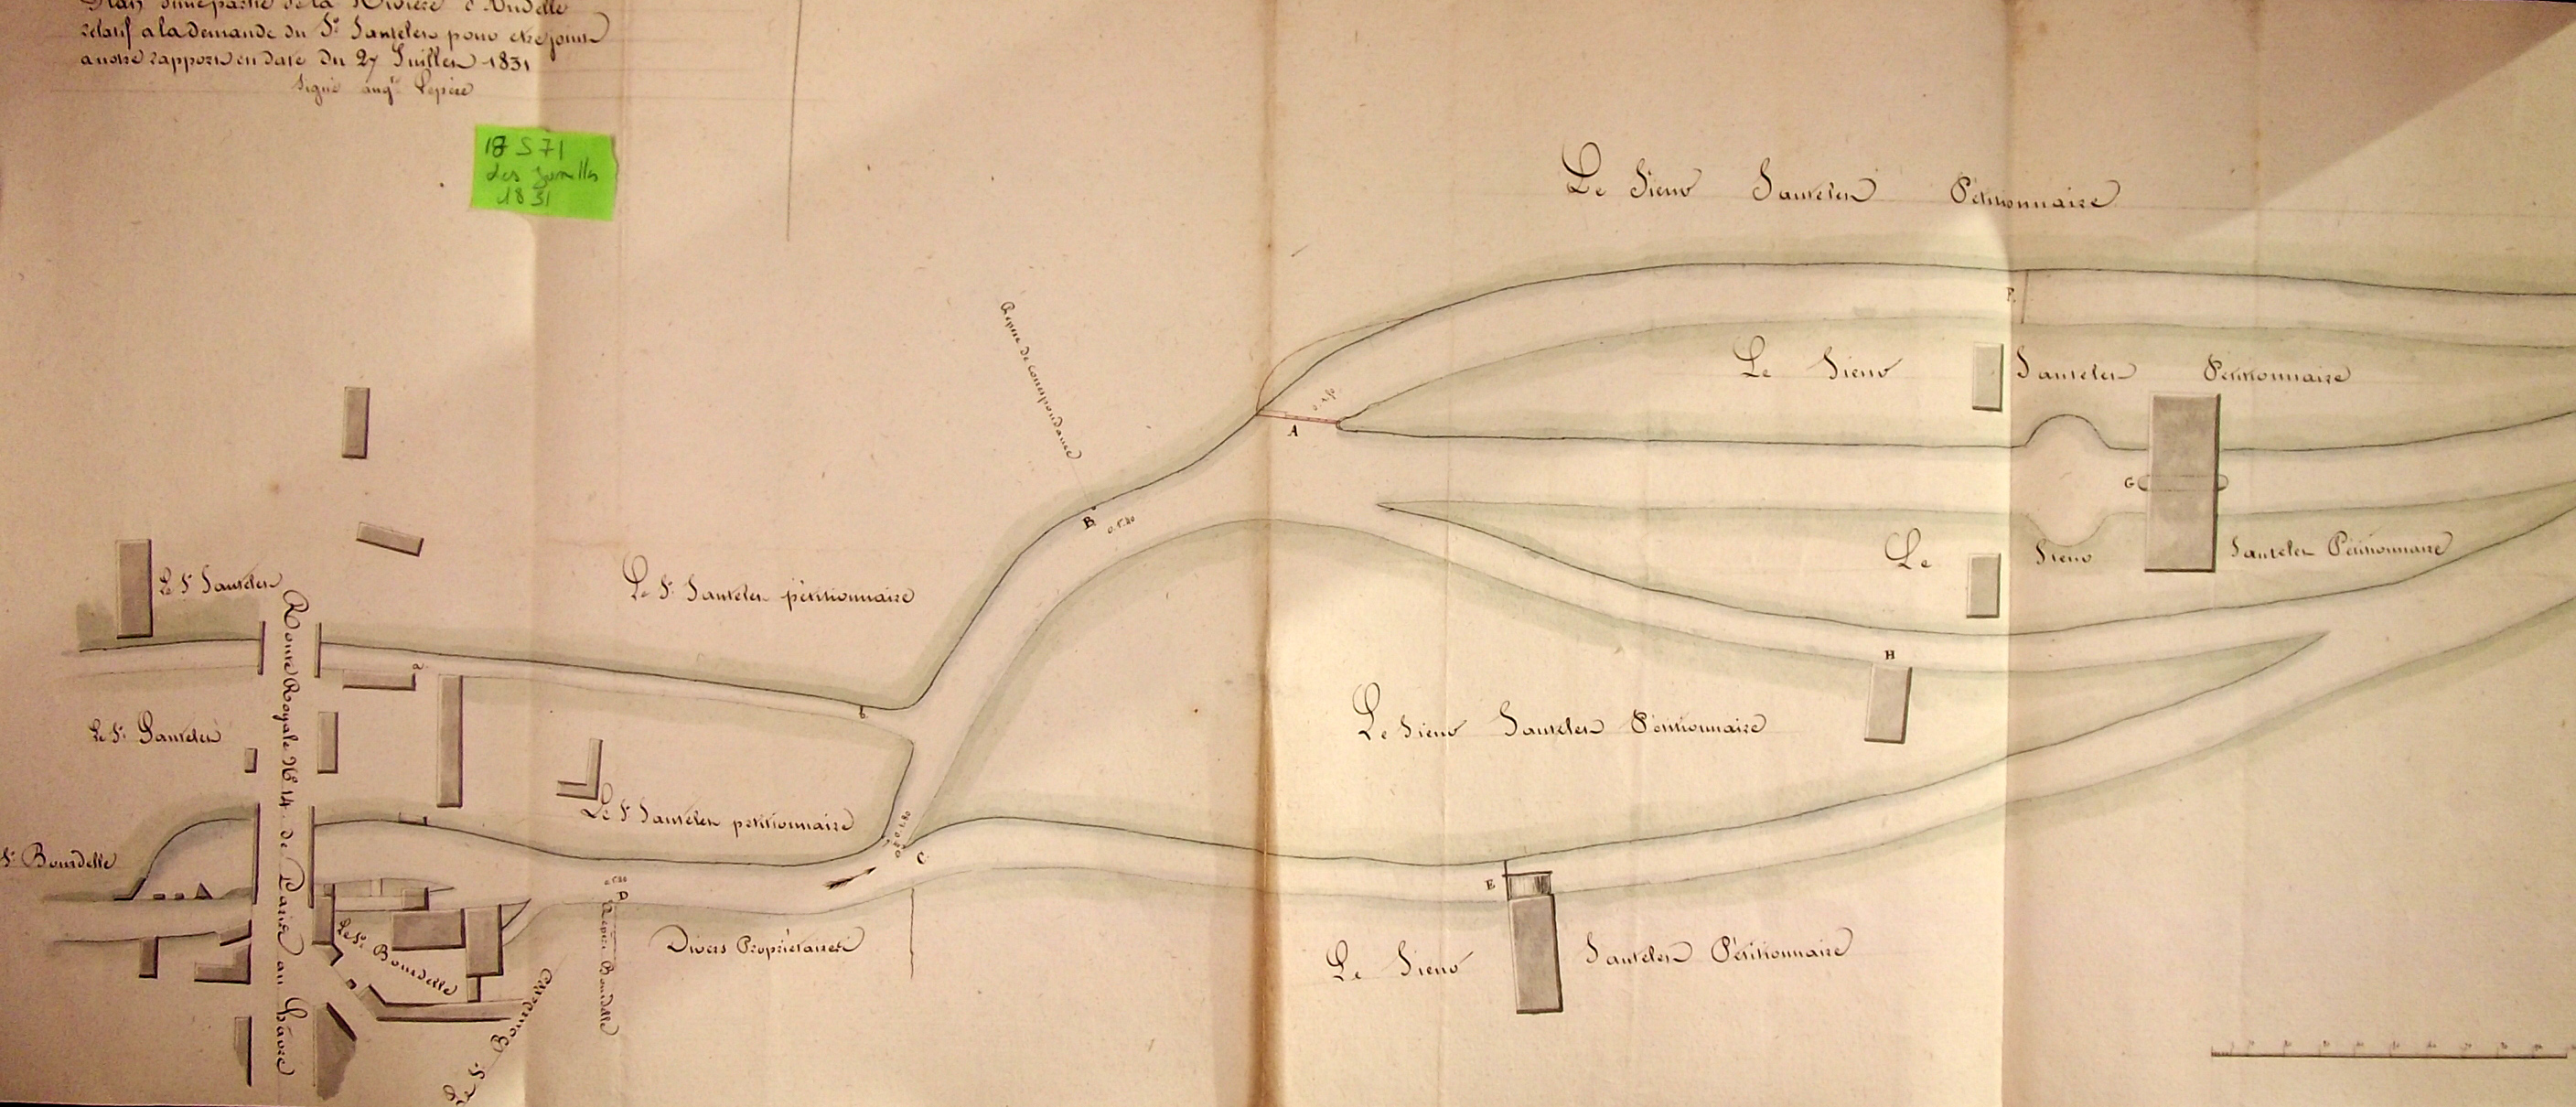 Plan d'une partie de la Rivière d'Andelle
relatif a la demande du Sr. Sautelet pour etre joint
a notre rapport en date du 27 Juillet 1831
Signé Lepère
18 S 71
Les Jumelles
1831
Le Sieur Sautelet Pétitionnaire
Repère de correspondance
P.
Le Sieur Sautelet Pétitionnaire
A
B
G
Le Sieur Sautelet Pétitionnaire
Le Sr. Sautelet
Le Sr. Sautelet pétitionnaire
Route Royale No. 14 de Paris au Hâvre
a
H
b
Le Sr. Sautelet
Le Sieur Sautelet Pétitionnaire
Le Sr. Sautelet pétitionnaire
Sr. Bourdelle
C
E
D
Repère Bourdelle
Le Sr. Bourdelle
Divers Propriétaires
Le Sieur Sautelet Pétitionnaire
Le Sr. Bourdelle